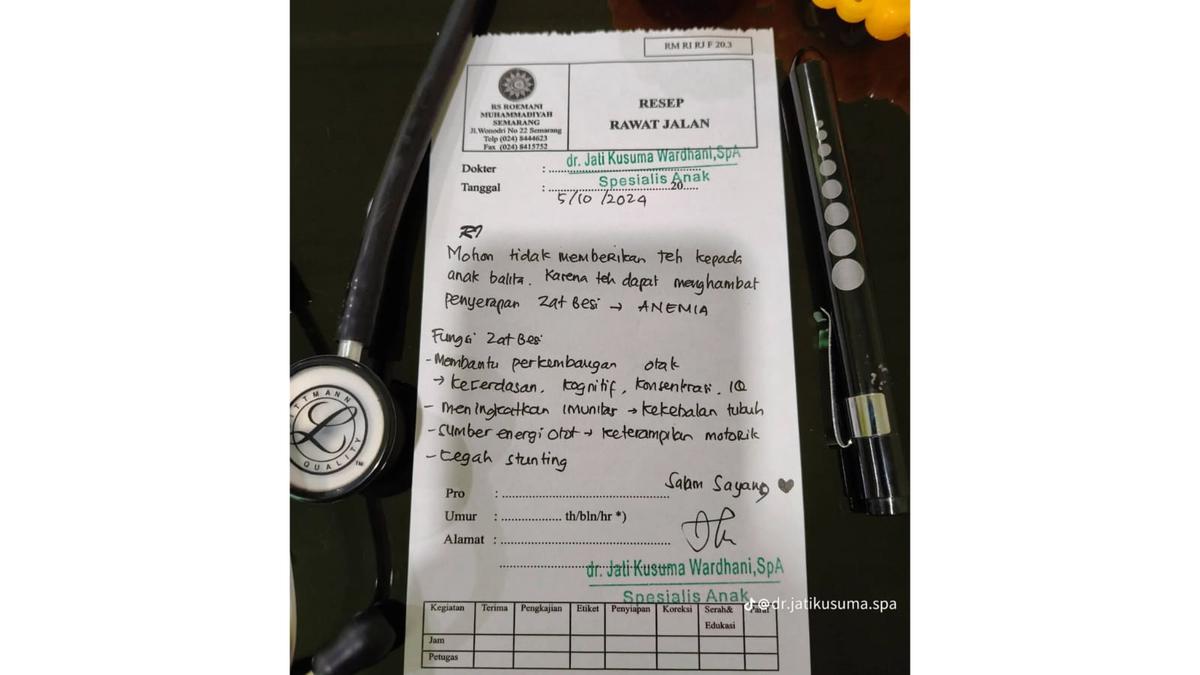 RM RI RJ F 20.3
RS ROEMANI
MUHAMMADIYAH
SEMARANG
Jl.Wonodri No 22 Semarang
Telp (024) 8444623
Fax (024) 8415752
RESEP
RAWAT JALAN
Dokter : dr. Jati Kusuma Wardhani,SpA
Spesialis Anak
Tanggal : 20
5/10/2024
R/
Mohon tidak memberikan teh kepada
anak balita. Karena teh dapat menghambat
penyerapan Zat Besi → ANEMIA
Fungsi Zat Besi
- Membantu perkembangan otak
→ kecerdasan, kognitif, konsentrasi, IQ
- meningkatkan imunitas → kekebalan tubuh
- Sumber energi otot → keterampilan motorik
- Cegah stunting
Salam Sayang ♥
Pro :
Umur : th/bln/hr *)
Alamat :
dr. Jati Kusuma Wardhani,SpA
Spesialis Anak
@dr.jatikusuma.spa
Kegiatan Terima Pengkajian Etiket Penyiapan Koreksi Serah& Edukasi
Jam
Petugas
LITTMANN
QUALITY